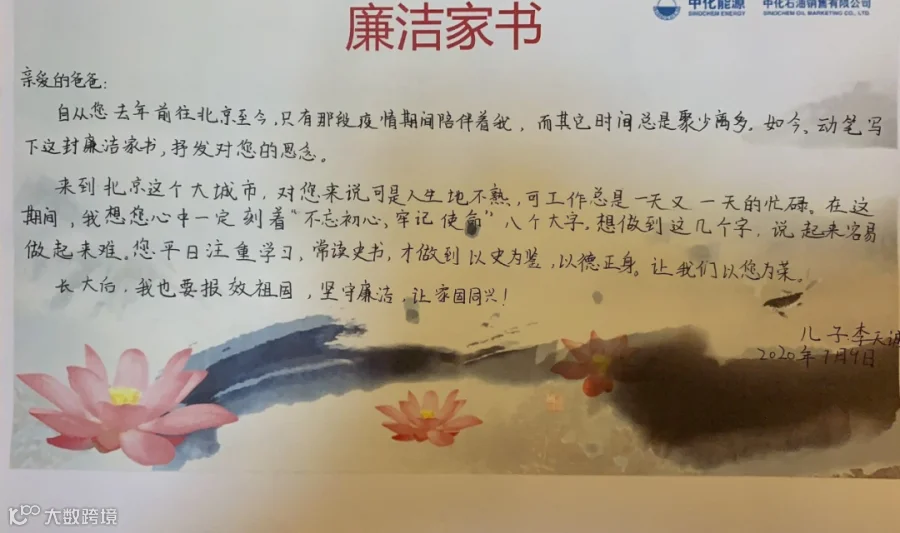 廉洁家书
中化能源 中化石油销售有限公司
SINOCHEM ENERGY SINOCHEM OIL MARKETING CO., LTD.
亲爱的爸爸：
自从您去年前往北京至今，只有那段疫情期间陪伴着我，而其它时间总是聚少离多。如今，动笔写
下这封廉洁家书，抒发对您的思念。
来到北京这个大城市，对您来说可是人生地不熟，可工作总是一天又一天的忙碌。在这
期间，我想您心中一定刻着“不忘初心，牢记使命”八个大字。想做到这几个字，说起来容易
做起来难。您平日注重学习，常读史书，才做到以史为鉴，以德正身。让我们以您为荣。
长大后，我也要报效祖国，坚守廉洁，让家国同兴！
儿子：李天
2020年7月9日
大数跨境